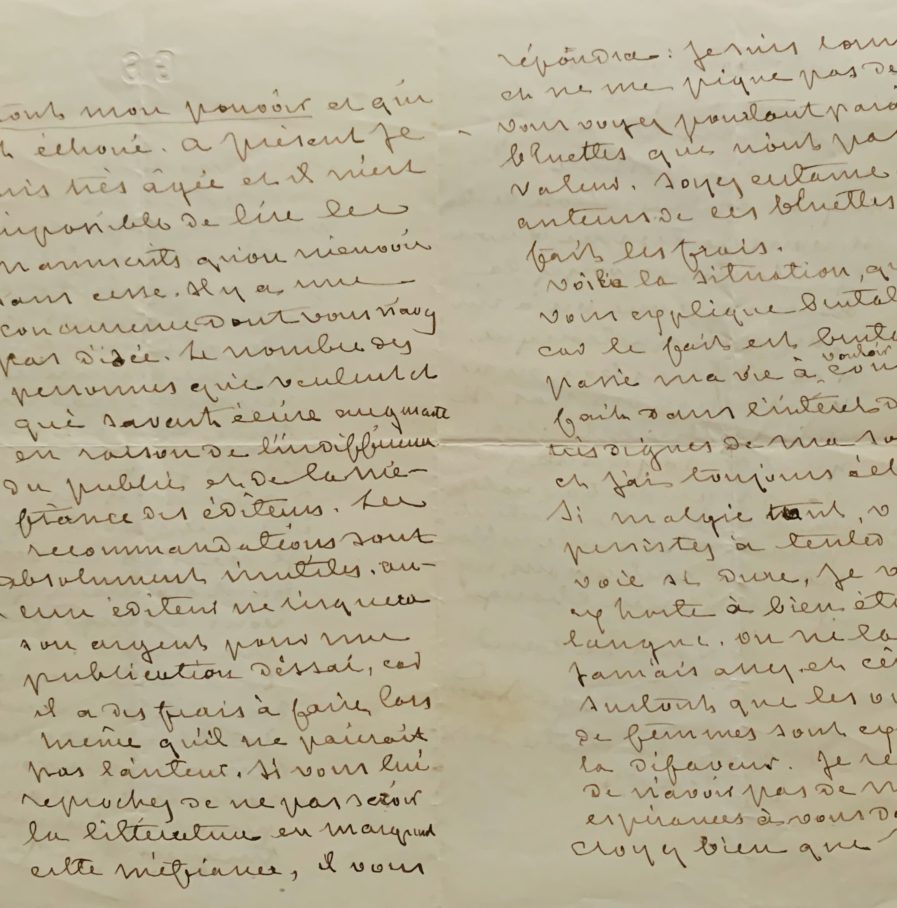 tout mon pouvoir et qui
échoué. a présent je
suis très âgée et il m'est
impossible de lire les
manuscrits qu'on m'envoie
sans cesse. Il y a une
concurrence dont vous n'avez
pas d'idée. Le nombre des
personnes qui veulent et
qui savent écrire augmente
en raison de l'indifférence
du public et de la mé-
fiance des éditeurs. Les
recommandations sont
absolument inutiles. au-
cun éditeur ne risquera
son argent pour une
publication d'éssai, car
il a des frais à faire, lors
même qu'il ne paierait
pas l'auteur. Si vous lui
reprochez de ne pas servir
la littérature en marquant
cette méfiance, il vous
répondra : je suis com
et ne me pique pas de
vous voyez pourtant para
bluettes que n'ont pas
valeur. Soyez certaine
auteurs de ces bluettes
fait les frais.
voilà la situation, qu
vous explique brutal
car le fait est brutal
passé ma vie à vouloir
fait dans l'intérêt d
très dignes de ma
et j'ai toujours éch
Si malgré tout, v
persistez à tenter
voie si dure, je v
exhorte à bien étu
langue. on ne la
jamais assez et c'est
surtout que les ou
de femmes sont exp
la défaveur. Je re
de n'avoir pas de m
espérances à vous do
croyez bien que